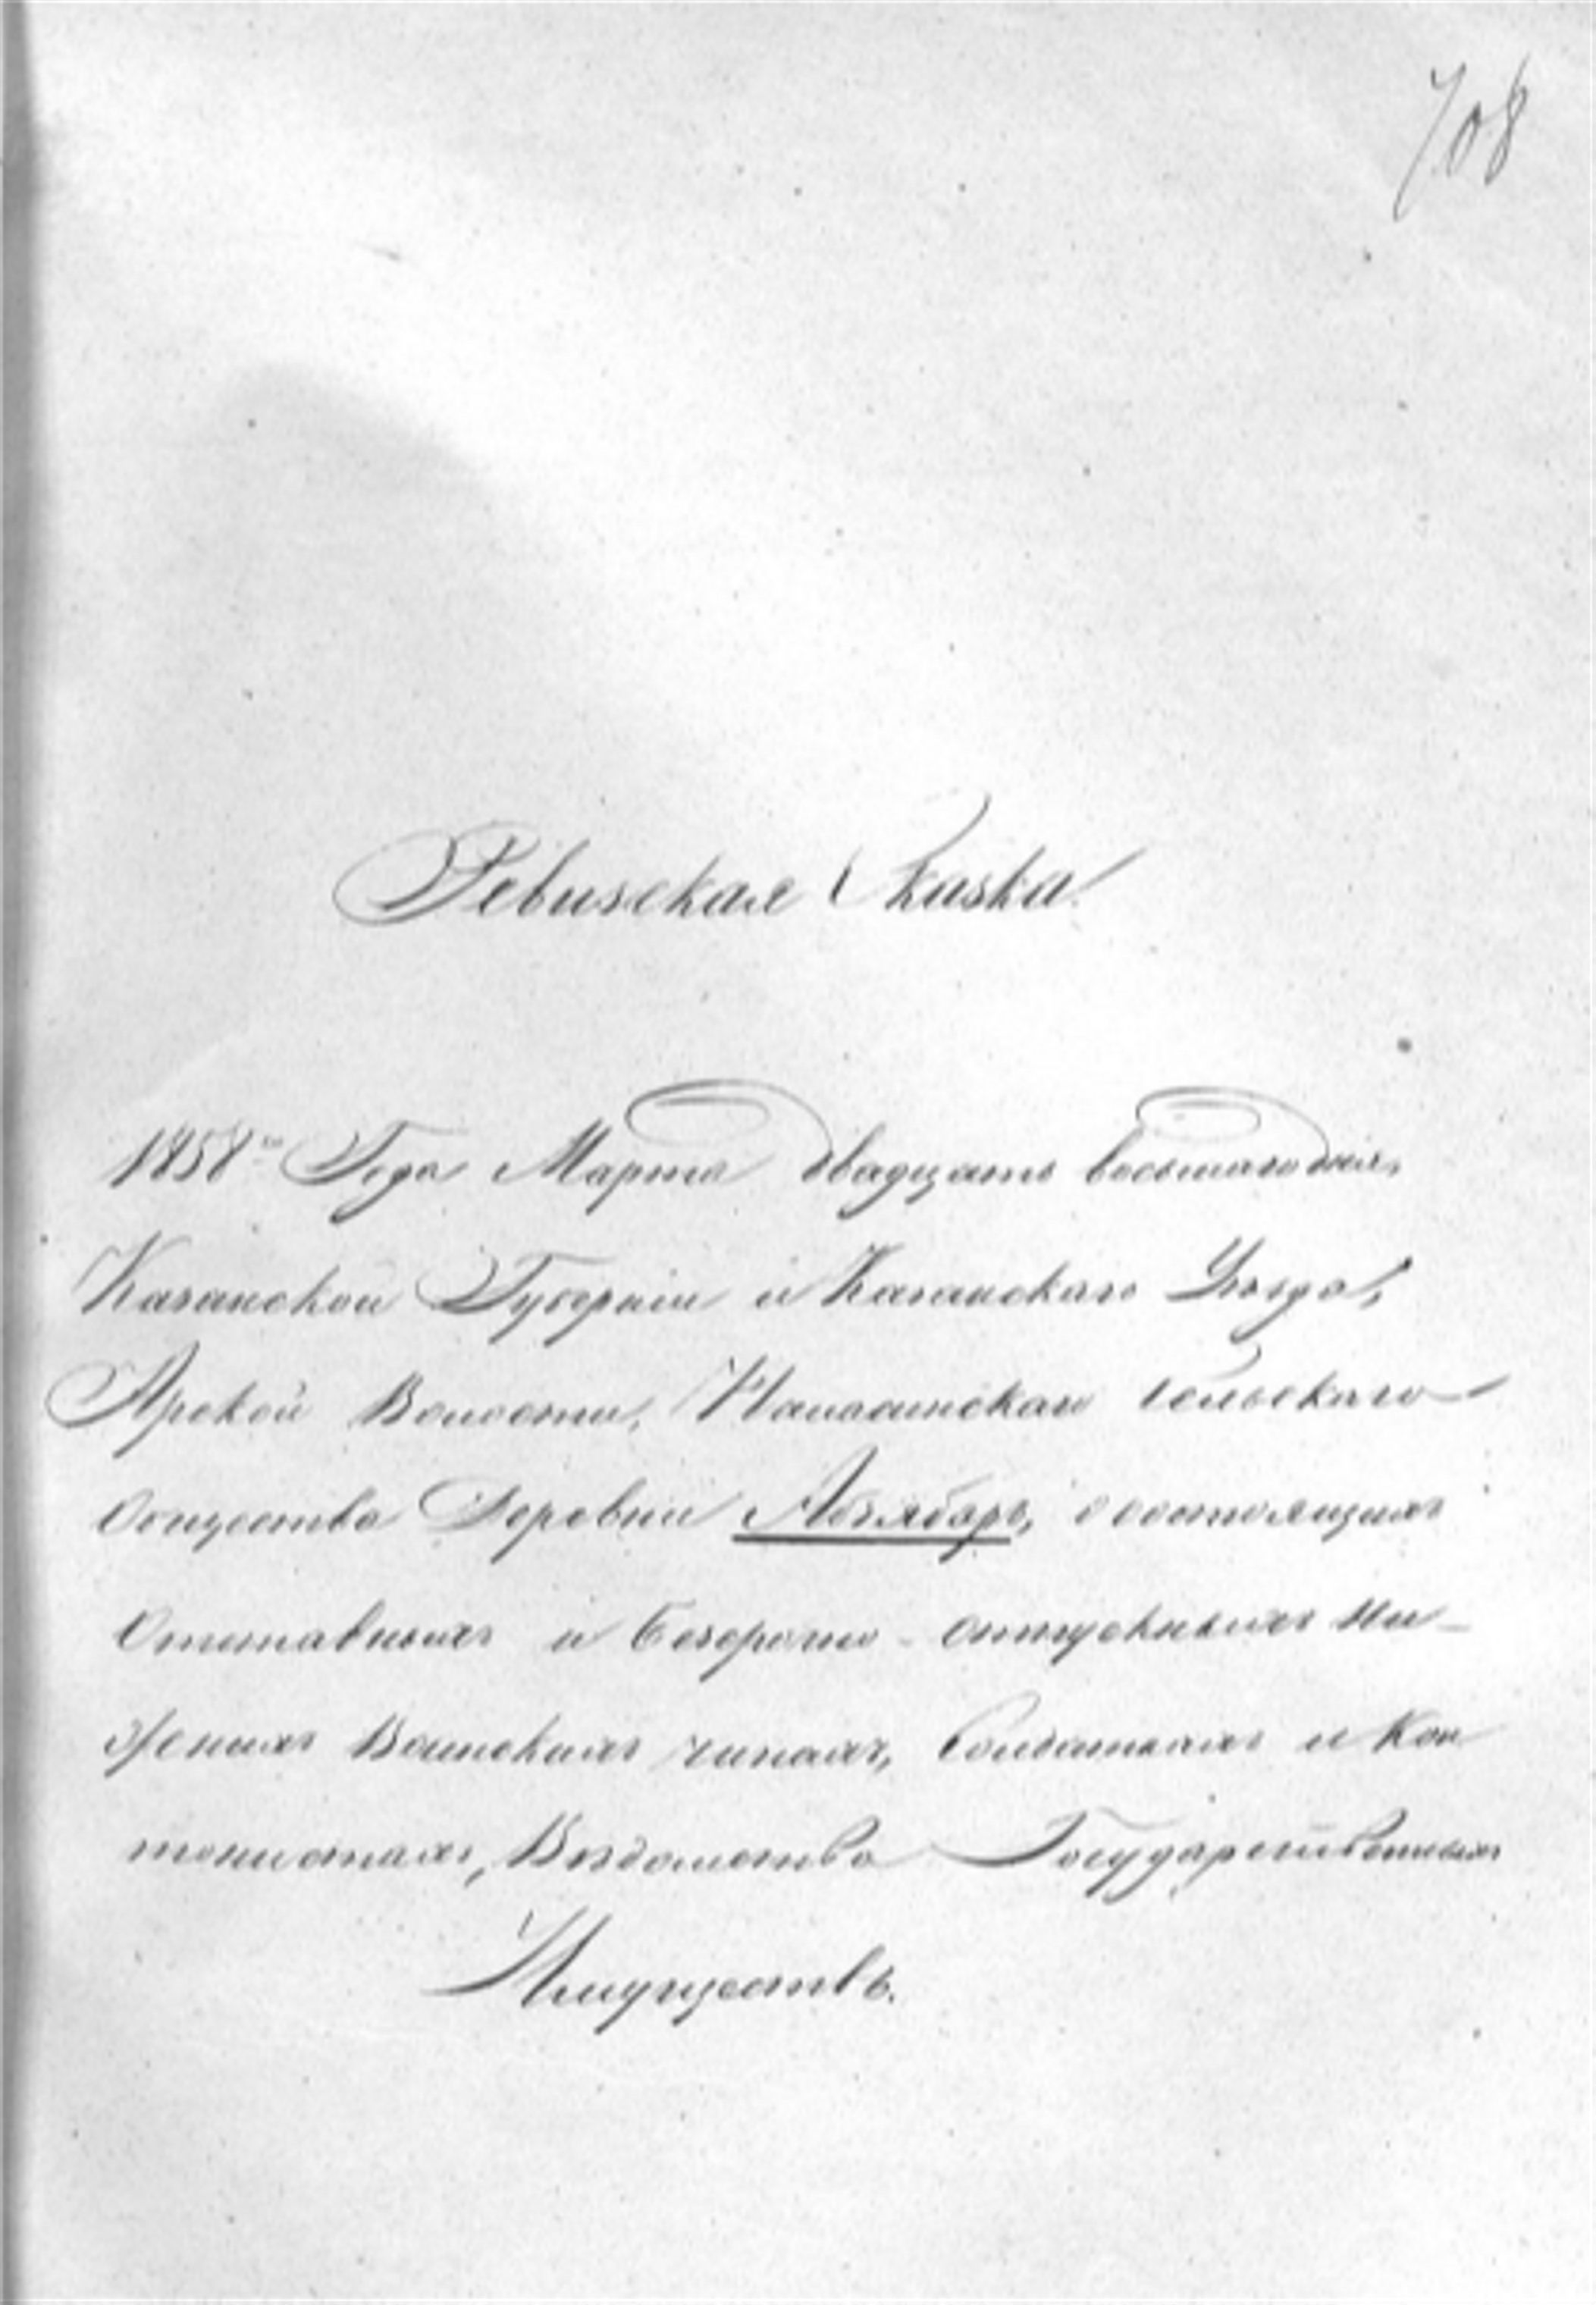 708
Ревизская Сказка.
1858го Года Марта двадцать восьмаго дня,
Казанской Губерніи и Казанскаго Уѣзда,
Арской Волости, сельскаго
общества Деревни о состоящихъ
Отставныхъ и безсрочно-отпускныхъ Ни-
жнихъ Воинскихъ чинахъ, Солдаткахъ и Кан
тонистахъ, Вѣдомства Государственныхъ
Имуществъ.